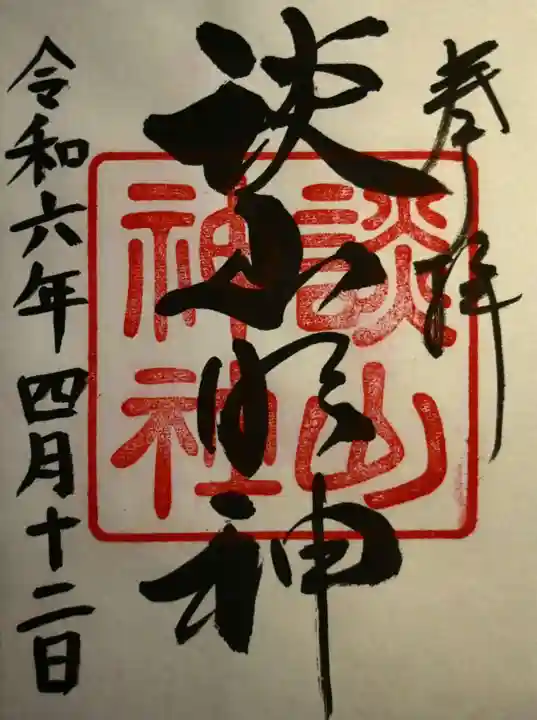 奉拝
談山明神
談山神社
令和六年四月十二日